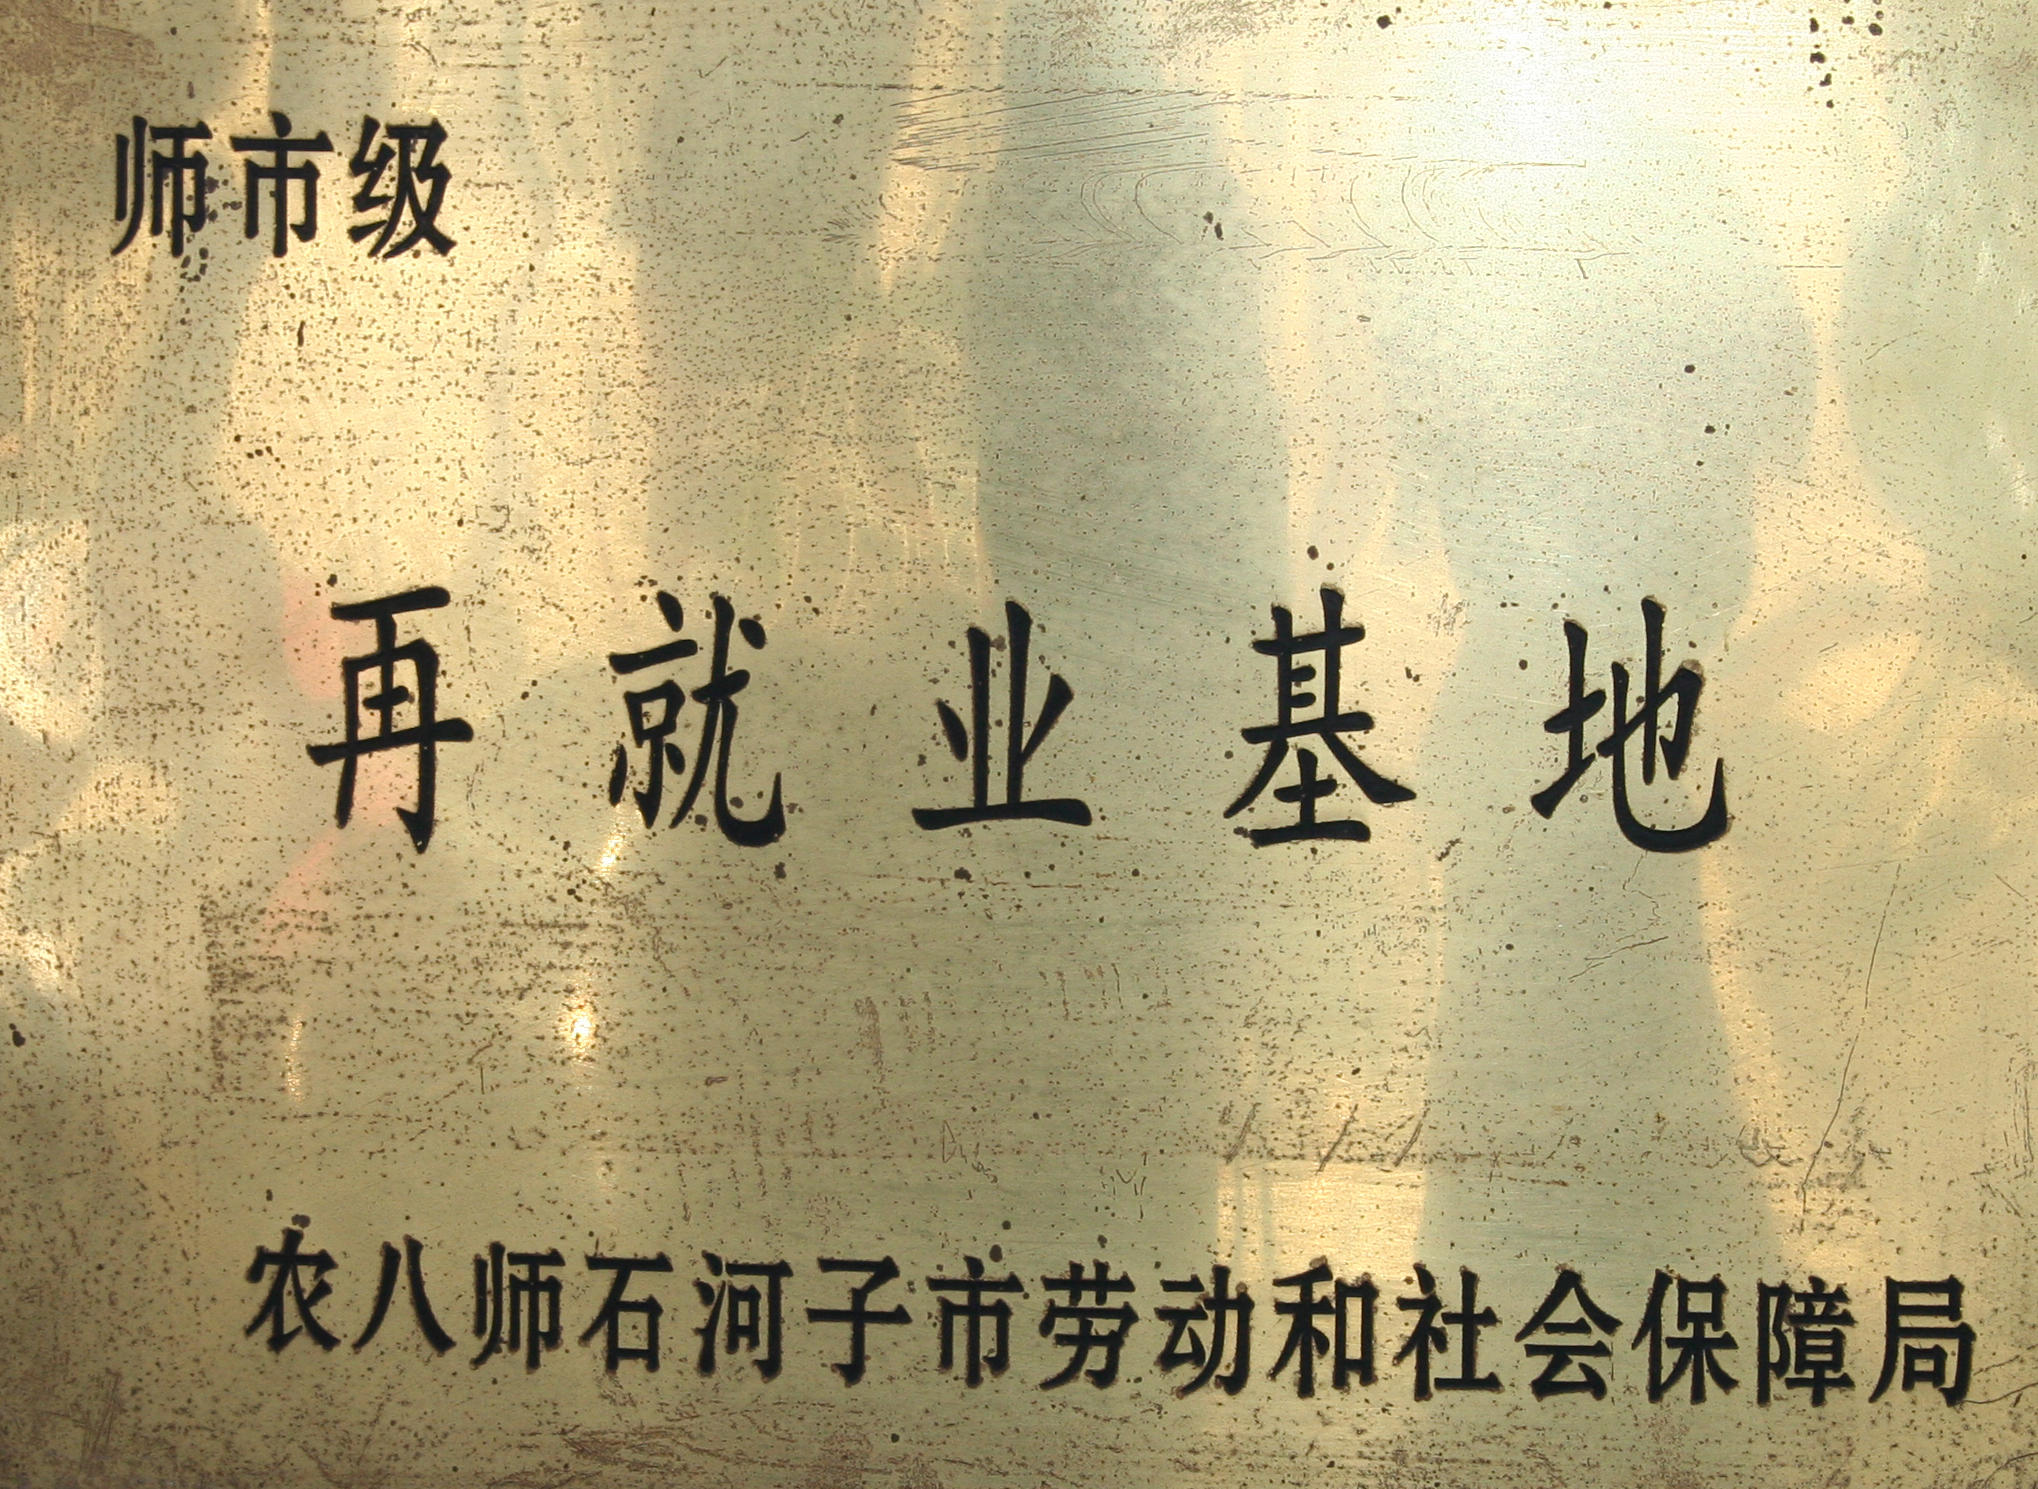 师市级
再就业基地
农八师石河子市劳动和社会保障局